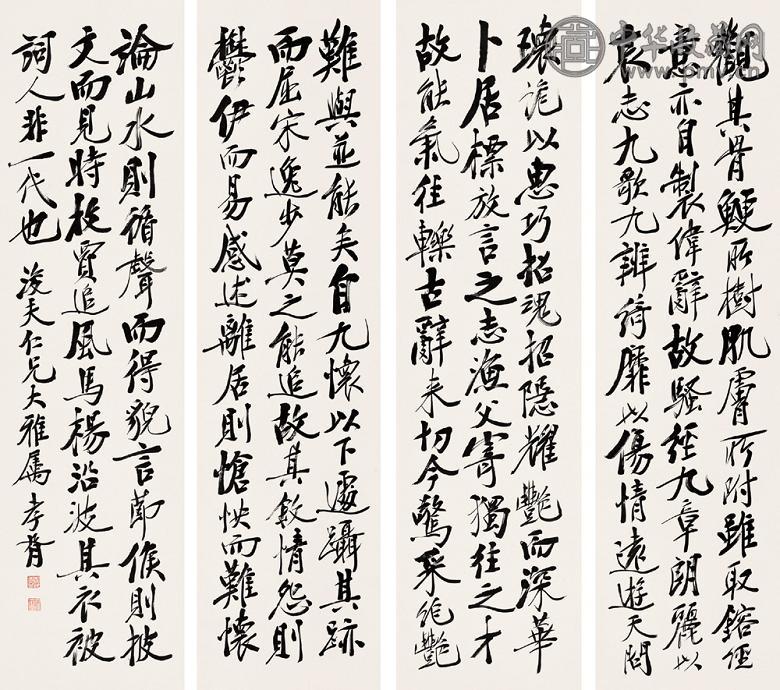 觀其骨鯁所樹肌膚所附雖取鎔經
意亦自製偉辭故騷經九章朗麗以
哀志九歌九辨綺靡以傷情遠遊天問
瓌詭以惠巧招魂招隱耀艷而深華
卜居標放言之志漁父寄獨往之才
故能氣往轢古辭来切今驚采絕艷
難與並能矣自九懷以下遽躡其跡
而屈宋逸步莫之能追故其敘情怨則
鬱伊而易感述離居則愴怏而難懷
論山水則循聲而得貌言節候則披
文而見時枚賈追風馬楊沿波其衣被
詞人非一代也 浚天仁兄大雅屬 孝胥
中华收藏网